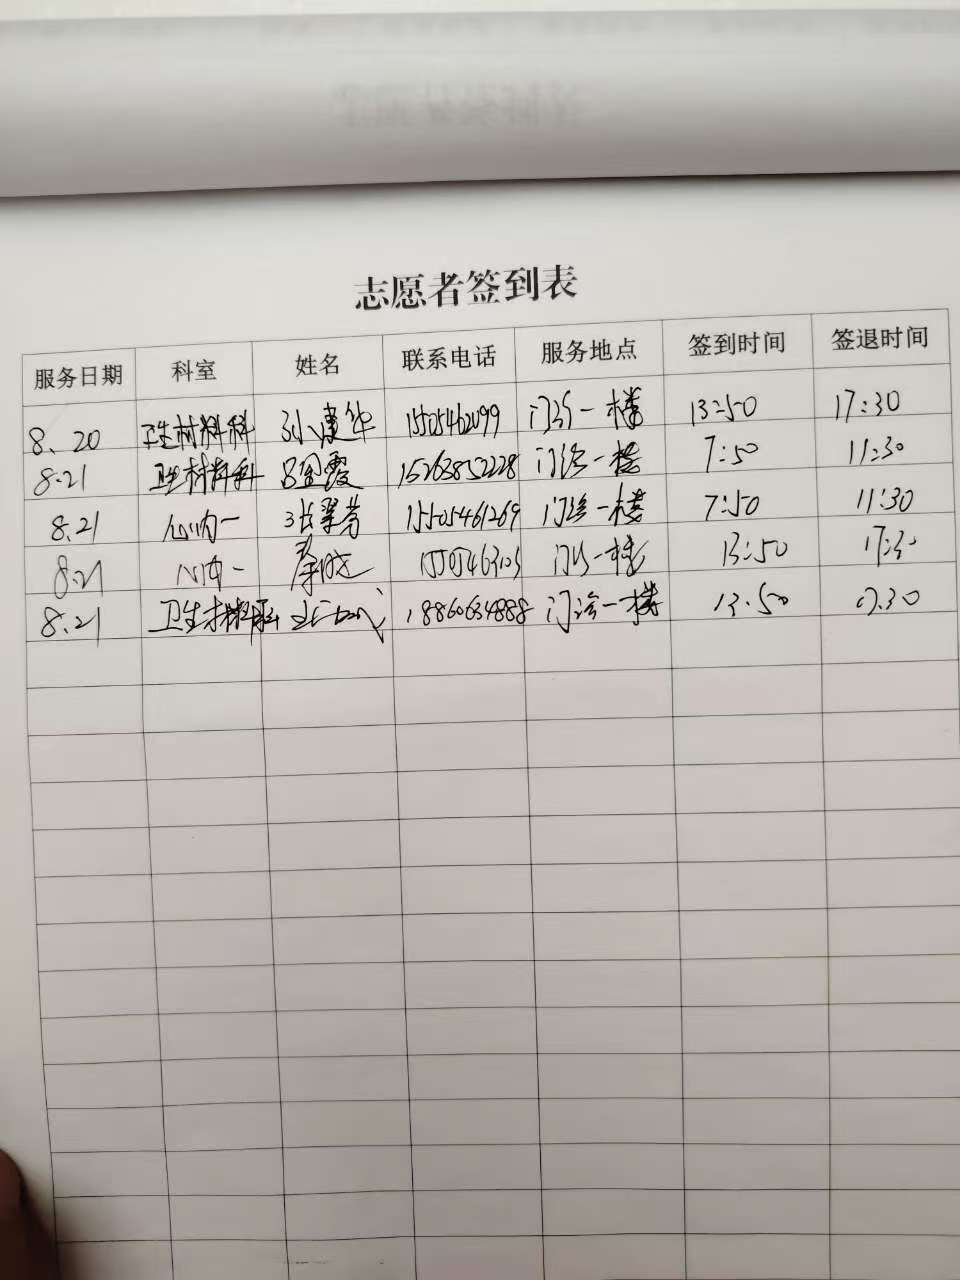 志愿者签到表
服务日期 科室 姓名 联系电话 服务地点 签到时间 签退时间
8.20 卫生材料科 孙建华 15505462099 门诊一楼 13:50 17:30
8.21 卫生材料科 吕国霞 15263852228 门诊一楼 7:50 11:30
8.21 心内一 张翠芳 15505461269 门诊一楼 7:50 11:30
8.21 心内一 门诊一楼 13:50 17:30
8.21 卫生材料科 18860634888 门诊一楼 13.50 17.30